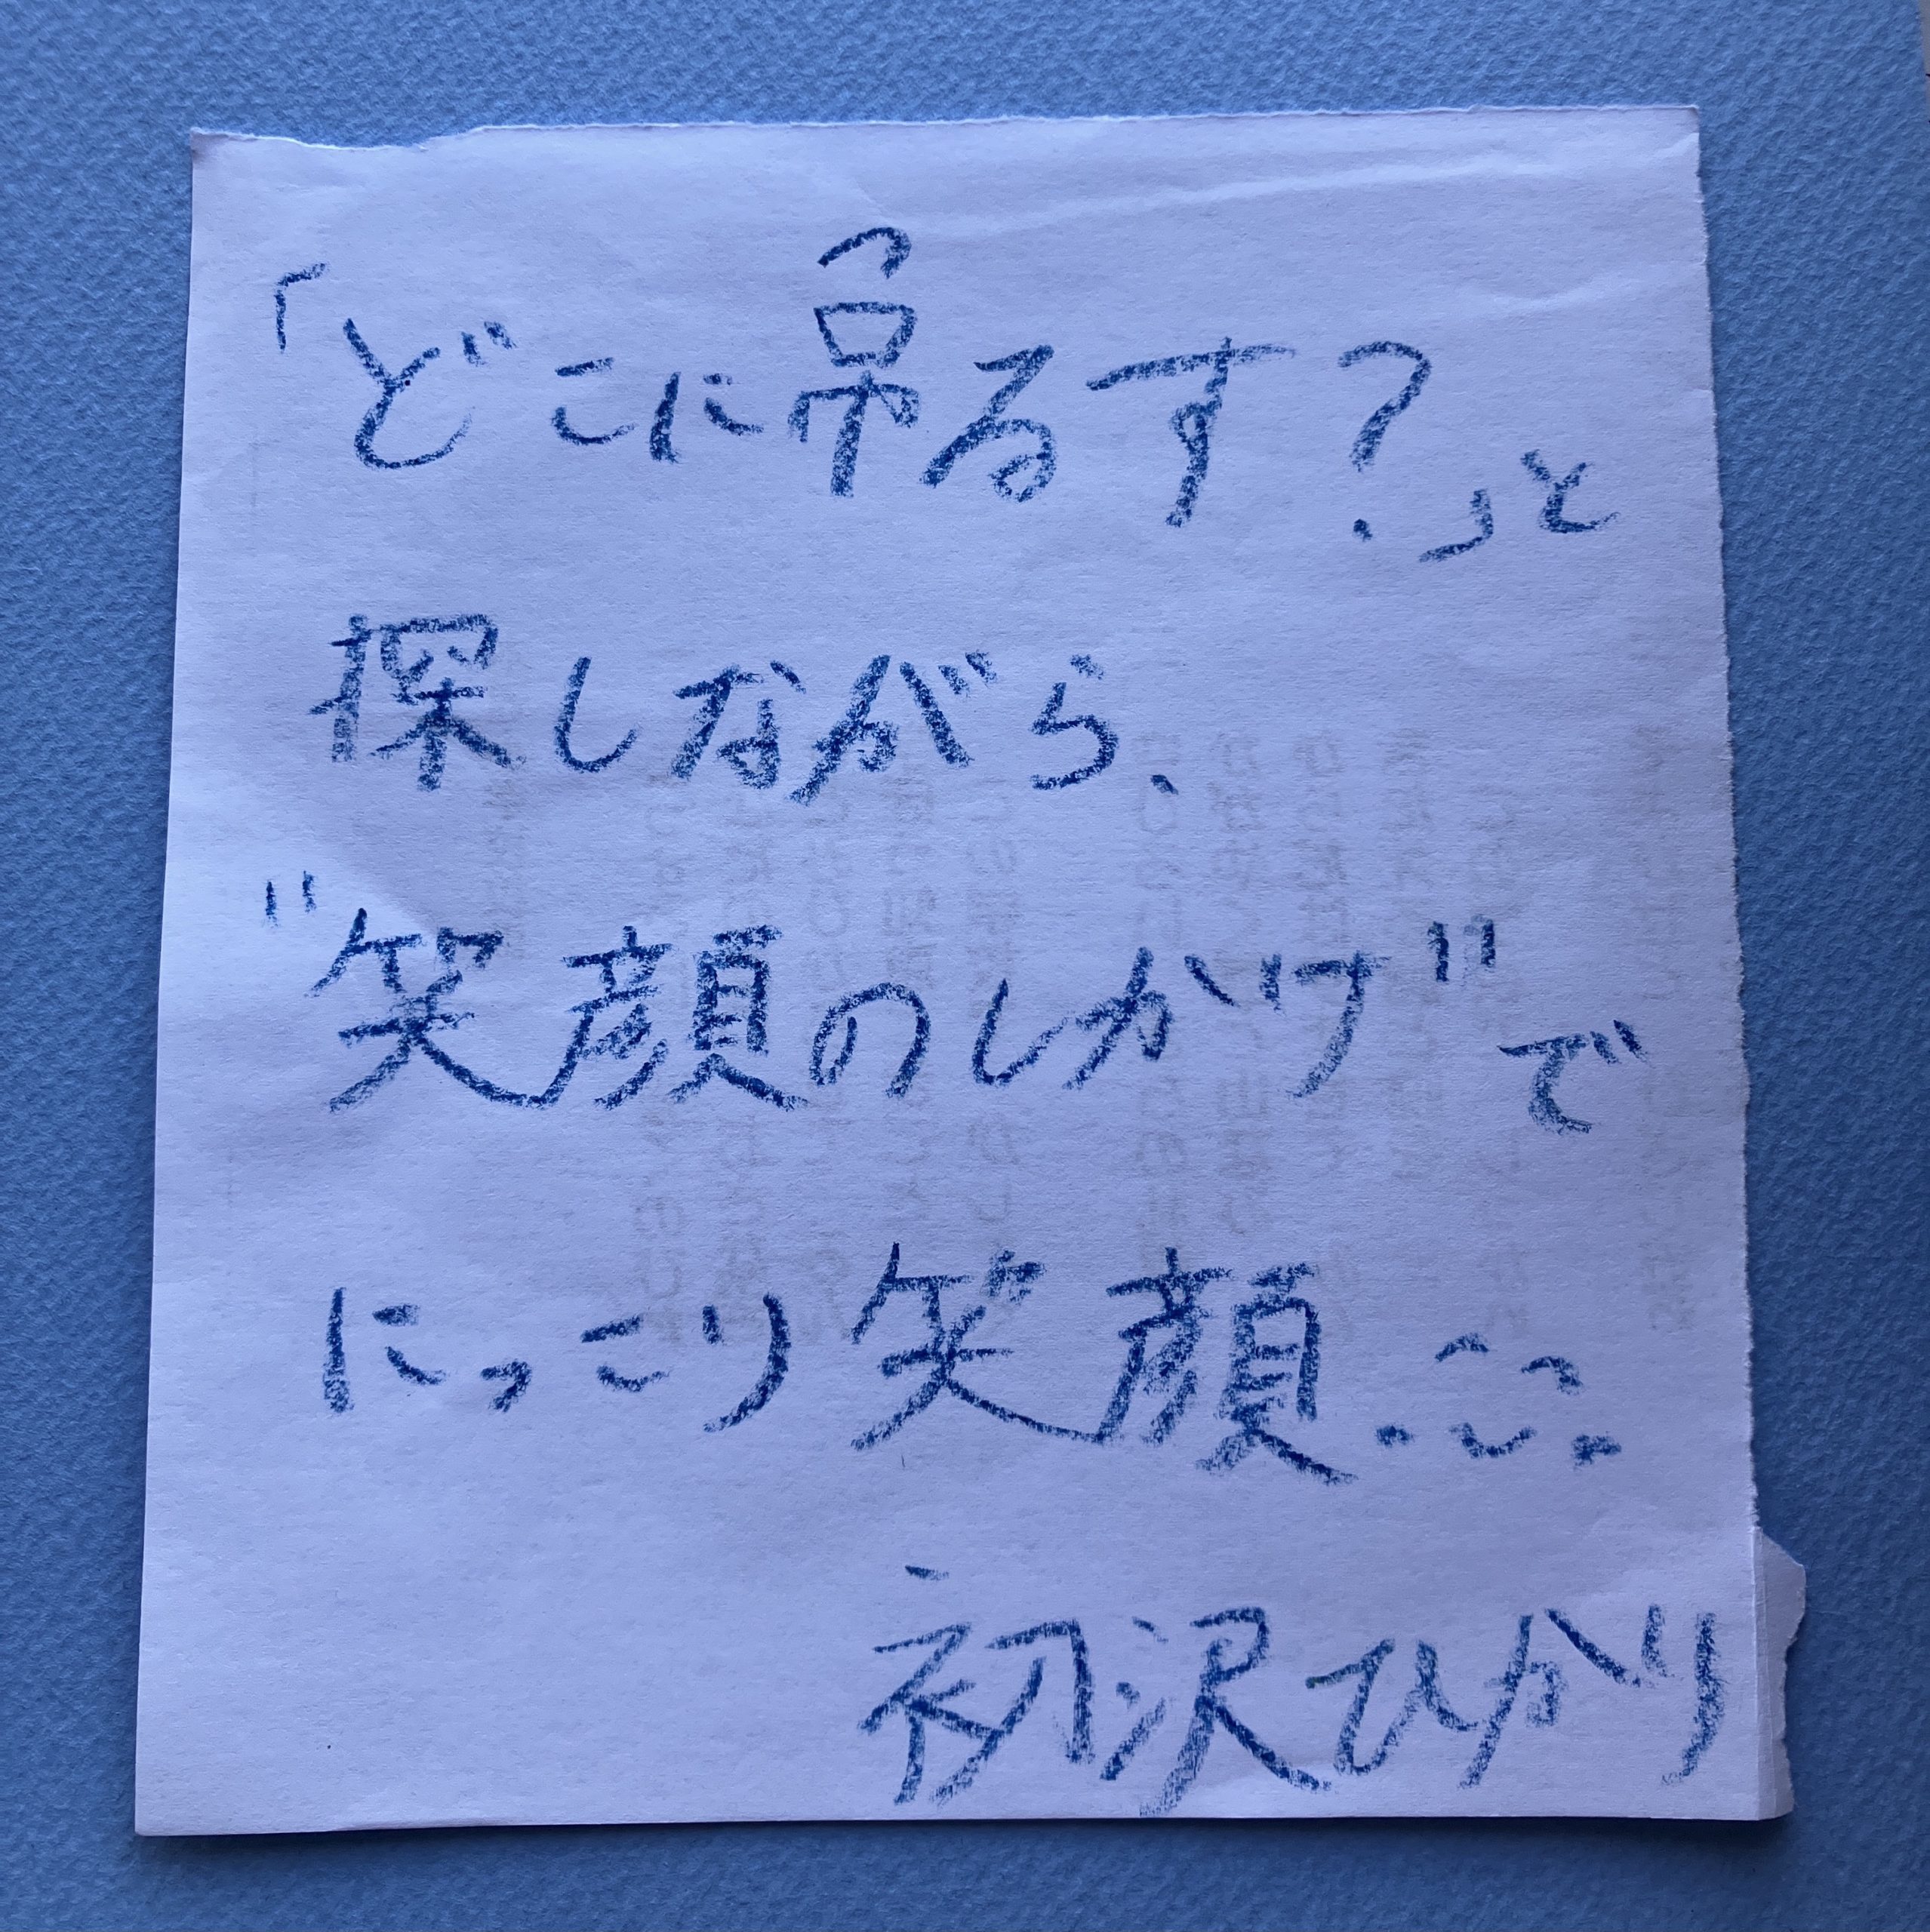 「どこに吊るす?」と
探しながら、
"笑顔のしかけ"で
にっこり笑顔
初沢ひかり